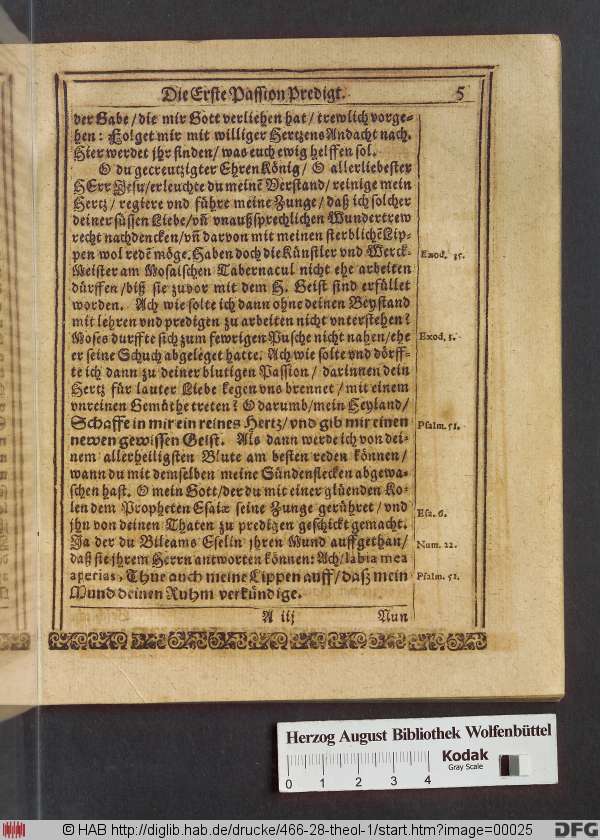 Die Erste Passion Predigt. 5
der Gabe / die mir Gott verliehen hat / trewlich vorge-
hen: Folget mir mit williger Hertzens Andacht nach.
Hier werdet jhr finden / was euch ewig helffen sol.
O du gecreutzigter Ehren König / O allerliebester
HErr Jesu / erleuchte du meinẽ Verstand / reinige mein
Hertz / regiere vnd führe meine Zunge / daß ich solcher
deiner süssen Liebe / vñ vnaußsprechlichen Wundertrew
recht nachdencken / vñ darvon mit meinen sterblichẽ Lip-
pen wol redẽ möge. Haben doch die Künstler vnd Werck-
Meister am Mosaischen Tabernacul nicht ehe arbeiten
Exod. 35.
dürffen / biß sie zuvor mit dem H. Geist sind erfüllet
worden. Ach wie solte ich dann ohne deinen Beystand
mit lehren vnd predigen zu arbeiten nicht vnterstehen?
Moses durffte sich zum fewrigen Pusche nicht nahen / ehe
Exod. 3.
er seine Schuch abgeleget hatte. Ach wie solte vnd dörff-
te ich dann zu deiner blutigen Passion / darinnen dein
Hertz für lauter Liebe kegen vns brennet / mit einem
vnreinen Gemüthe treten? O darumb / mein Heyland /
Schaffe in mir ein reines Hertz / vnd gib mir einen
Psalm. 51.
newen gewissen Geist. Als dann werde ich von dei-
nem allerheiligsten Blute am besten reden können /
wann du mit demselben meine Sündenflecken abgewa-
schen hast. O mein Gott / der du mit einer glüenden Ko-
len dem Propheten Esaiæ seine Zunge gerühret / vnd
Esa. 6.
jhn von deinen Thaten zu predigen geschickt gemacht.
Ja der du Bileams Eselin jhren Mund auffgethan /
Num. 22.
daß sie jhrem Herrn antworten können: Ach / labia mea
aperias, Thue auch meine Lippen auff / daß mein
Psalm. 51.
Mund deinen Ruhm verkündige.
A iij Nun
Herzog August Bibliothek Wolfenbüttel
Kodak
Gray Scale
0 1 2 3 4
© HAB http://diglib.hab.de/drucke/466-28-theol-1/start.htm?image=00025
DFG